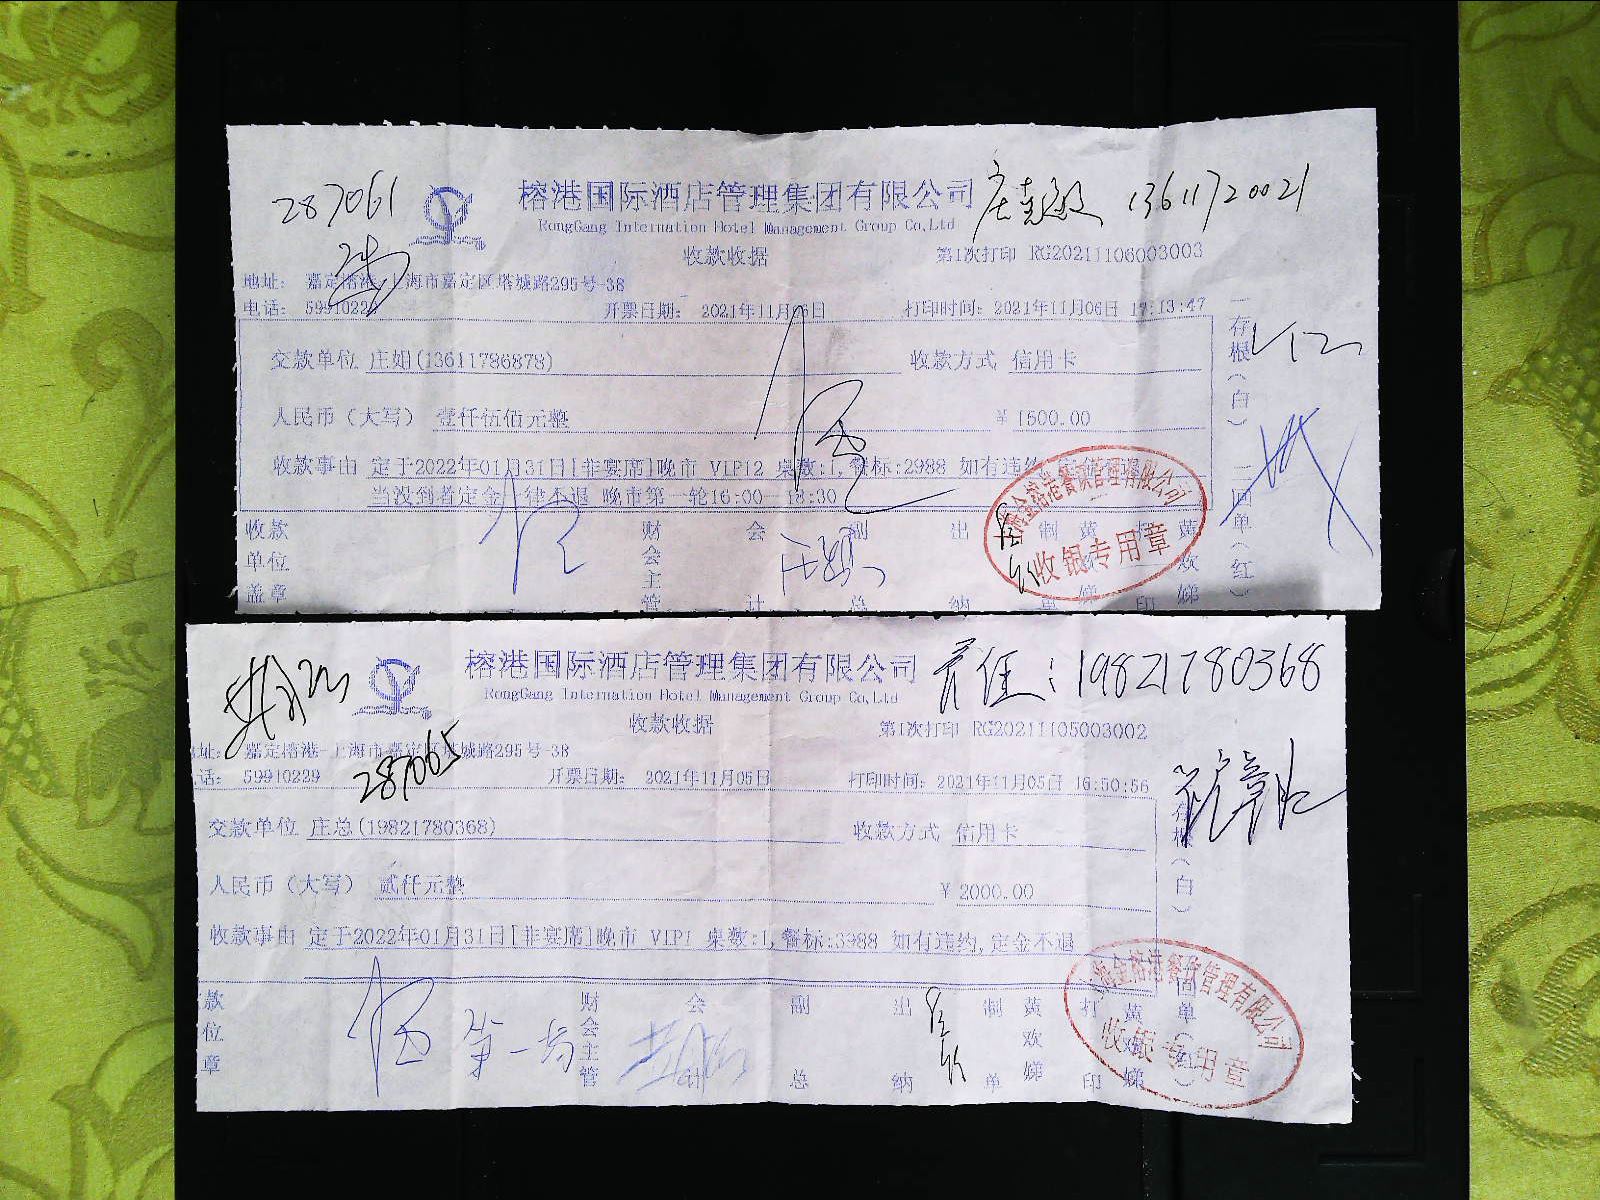 287061
榕港国际酒店管理集团有限公司
13611720021
RongGang Internation Hotel Management Group Co,Ltd
收款收据
第1次打印 RG20211106003003
地址: 嘉定榕港-上海市嘉定区塔城路295号-38
电话: 59910229
开票日期: 2021年11月06日
打印时间: 2021年11月06日 17:13:47
交款单位 庄姐(13611786878)
收款方式 信用卡
人民币(大写) 壹仟伍佰元整
¥ 1500.00
收款事由 定于2022年01月31日[非宴席]晚市 VIP12 桌数:1,餐标:2988 如有违约,定金不退
当没到者定金一律不退 晚市第一轮16:00-18:30
一存根(白) 二回单(红)
收款单位盖章
财会主管
会计
副总
出纳
制单
黄欢娣
打印
黄欢娣
金榕港餐饮管理有限公司
收银专用章
榕港国际酒店管理集团有限公司
19821780368
RongGang Internation Hotel Management Group Co,Ltd
收款收据
第1次打印 RG20211105003002
址: 嘉定榕港-上海市嘉定区塔城路295号-38
话: 59910229
287065
开票日期: 2021年11月05日
打印时间: 2021年11月05日 16:50:56
交款单位 庄总(19821780368)
收款方式 信用卡
人民币(大写) 贰仟元整
¥ 2000.00
收款事由 定于2022年01月31日[非宴席]晚市 VIP1 桌数:1,餐标:3988 如有违约,定金不退
存根(白)
回单(红)
款位章
第一场
财会主管
会计
副总
出纳
制单
黄欢娣
打印
黄欢娣
金榕港餐饮管理有限公司
收银专用章